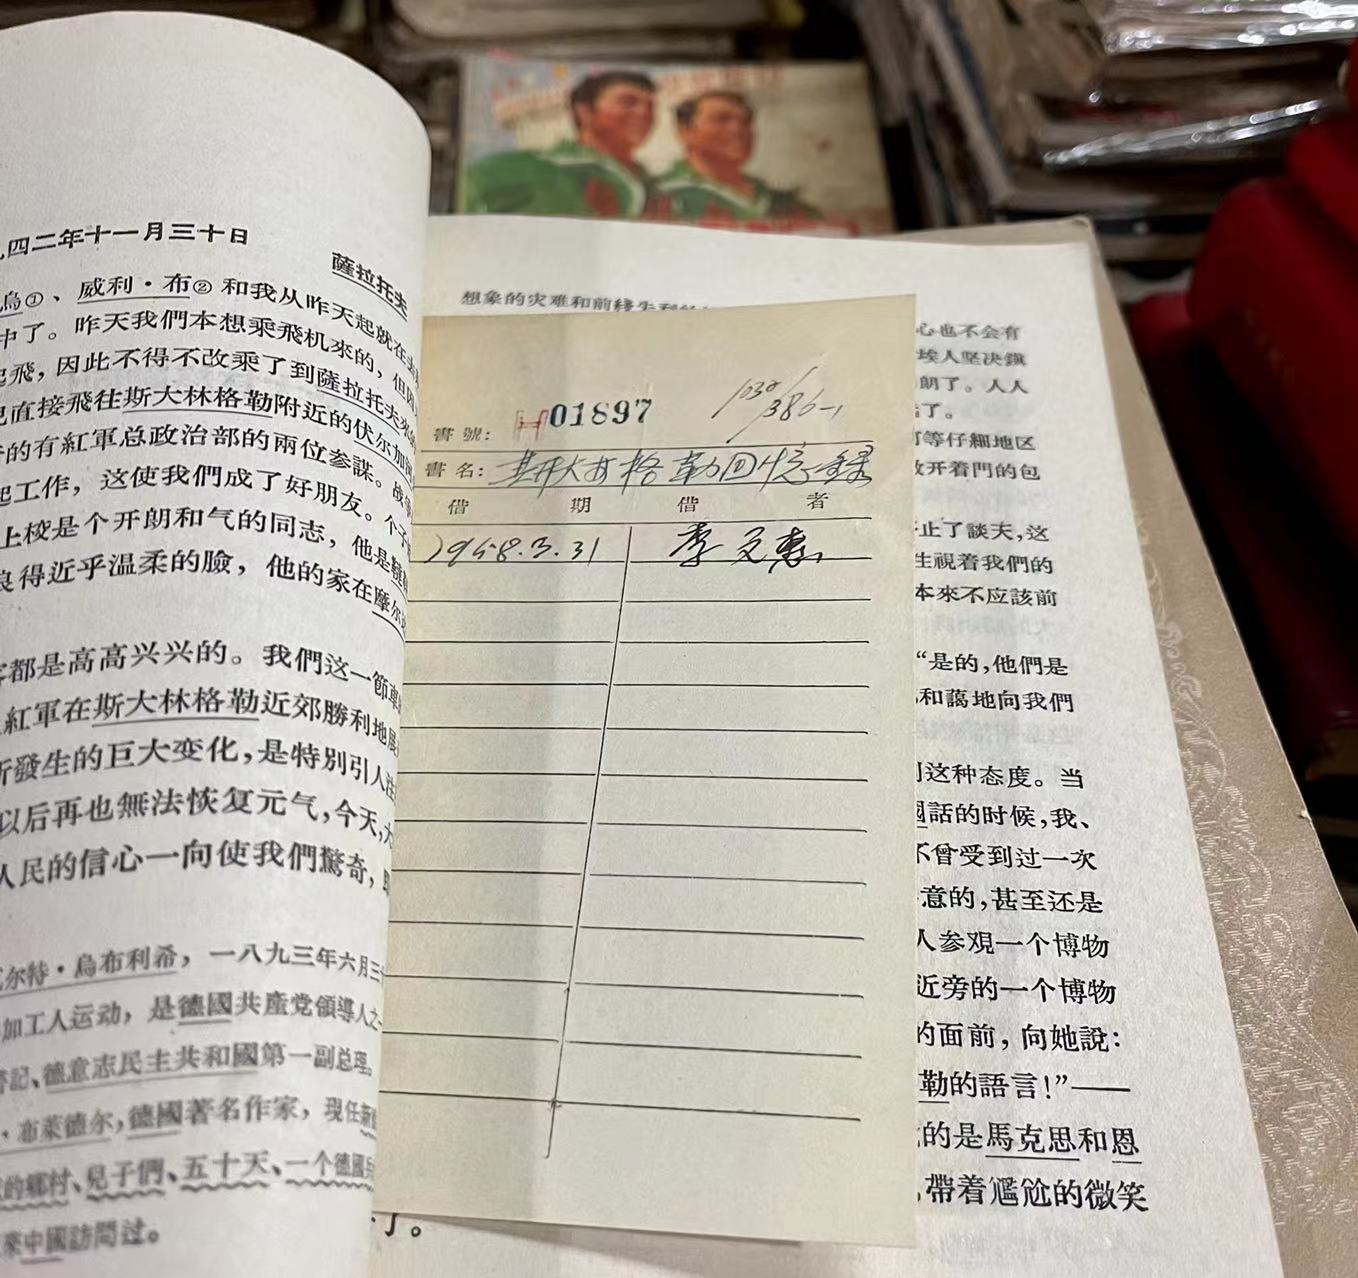 四二年十一月三十日
薩拉托夫
烏①、威利·布②和我从昨天起就在
中了。昨天我們本想乘飛机來的，但因
起飛，因此不得不改乘了到薩拉托夫來的
已直接飛往斯大林格勒附近的伏尔加
的有紅軍总政治部的兩位参謀。战
起工作，这使我們成了好朋友。个子
上校是个开朗和气的同志，他是
良得近乎温柔的臉，他的家在摩尔
都是高高兴兴的。我們这一節車
紅軍在斯大林格勒近郊勝利地展
所發生的巨大变化，是特別引人注
以后再也無法恢复元气，今天，
人民的信心一向使我們驚奇，
瓦尔特·烏布利希，一八九三年六月三十
加工人运动，是德國共產党領導人之一
書記、德意志民主共和國第一副总理。
·布萊德尔，德國著名作家，現任
的鄉村、兒子們、五十天、一个德國兵
來中國訪問过。
想象的灾难和前綫失利
書號：
H01897
1030/386-1
書名：
斯大林格勒回忆錄
借 期 借 者
1958.3.31
李文惠
心也不会有
埃人坚决鎮
朗了。人人
了。
等仔細地区
敞开着門的包
止了談天，这
生視着我們的
本來不应該前
“是的，他們是
和藹地向我們
这种态度。当
國話的时候，我、
不曾受到过一次
意的，甚至还是
人参观一个博物
近旁的一个博物
的面前，向她說：
勒的語言！”——
的是馬克思和恩
帶着尷尬的微笑
了。